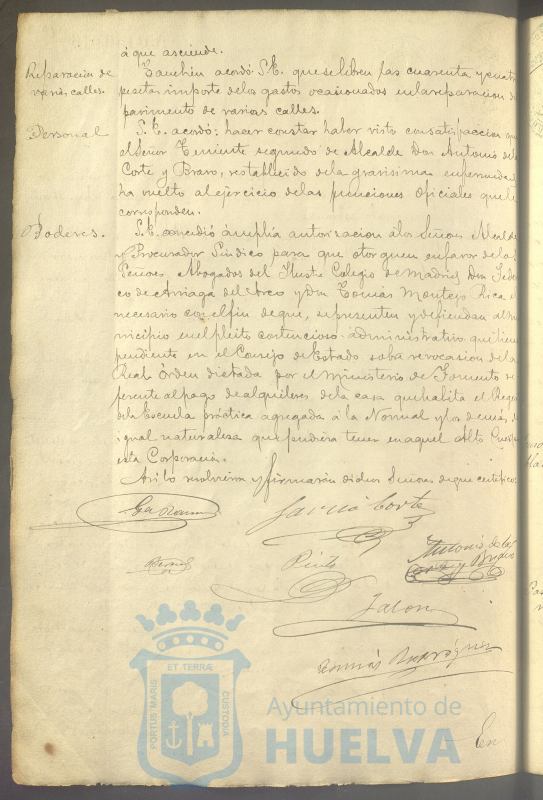 á que asciende.
Reparacion de varias calles.
Tambien acordó S.E. que se libren las cuarenta y cuatro
pesetas importe de los gastos ocasionados en la reparacion de
pavimento de varias calles.
Personal
S.E. acordó: hacer constar haber visto con satisfaccion que
el Señor Teniente segundo de Alcalde Don Antonio de la
Corte y Bravo, restablecido de la gravisima enfermedad
ha vuelto al ejercicio de las funciones oficiales que le
corresponden.
Poderes.
S.E. concedió ámplia autorizacion á los Señores Alcalde
y Procurador Síndico para que otorguen en favor de los
Señores Abogados del Ilustre Colegio de Madrid Don Federi
co de Arriaga del Arco y Don Tomás Montejo Rica el
necesario con el fin de que, representen y defiendan al Mu
nicipio en el pleito contencioso-administrativo que tiene
pendiente en el Consejo de Estado sobre revocasion de la
Real Orden dictada por el Ministerio de Fomento re
ferente al pago de alquileres de la casa que habita el Regente
de la Escuela práctica agregada á la Normal y los demás, de
igual naturaleza que pudiera tener en aquel Alto Cuerpo
esta Corporacion.
Asi lo resolvieron y firmarán dichos Señores de que certifico.
Garcia Corte
Pinto
Antonio de la
Corte y Bravo
Jalon
Tomás Rodríguez
PORTUS MARIS
ET TERRÆ
CUSTODIA
Ayuntamiento de
HUELVA
En